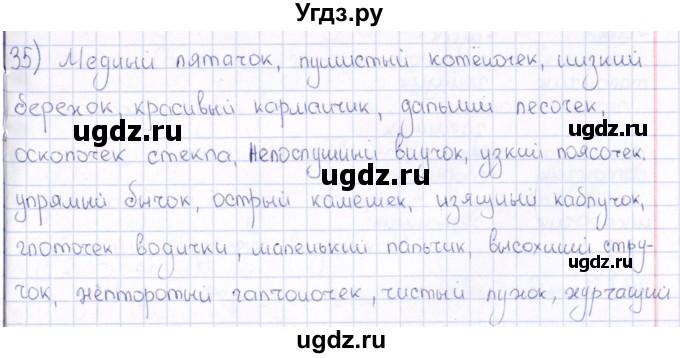 Угдз.ру
35) Медный пятачок, пушистый котёночек, низкий
бережок, красивый карманчик, дальний песочек,
ugdz.ru ugdz.ru
осколочек стекла, непослушный внучок, узкий поясочек.
ugdz.ru
упрямый бычок, острый камешек, изящный каблучок,
глоточек водички, маленький пальчик, высохший стру-
ugdz.ru ugdz.ru
чок, желторотый галчоночек, чистый лужок, журчащий